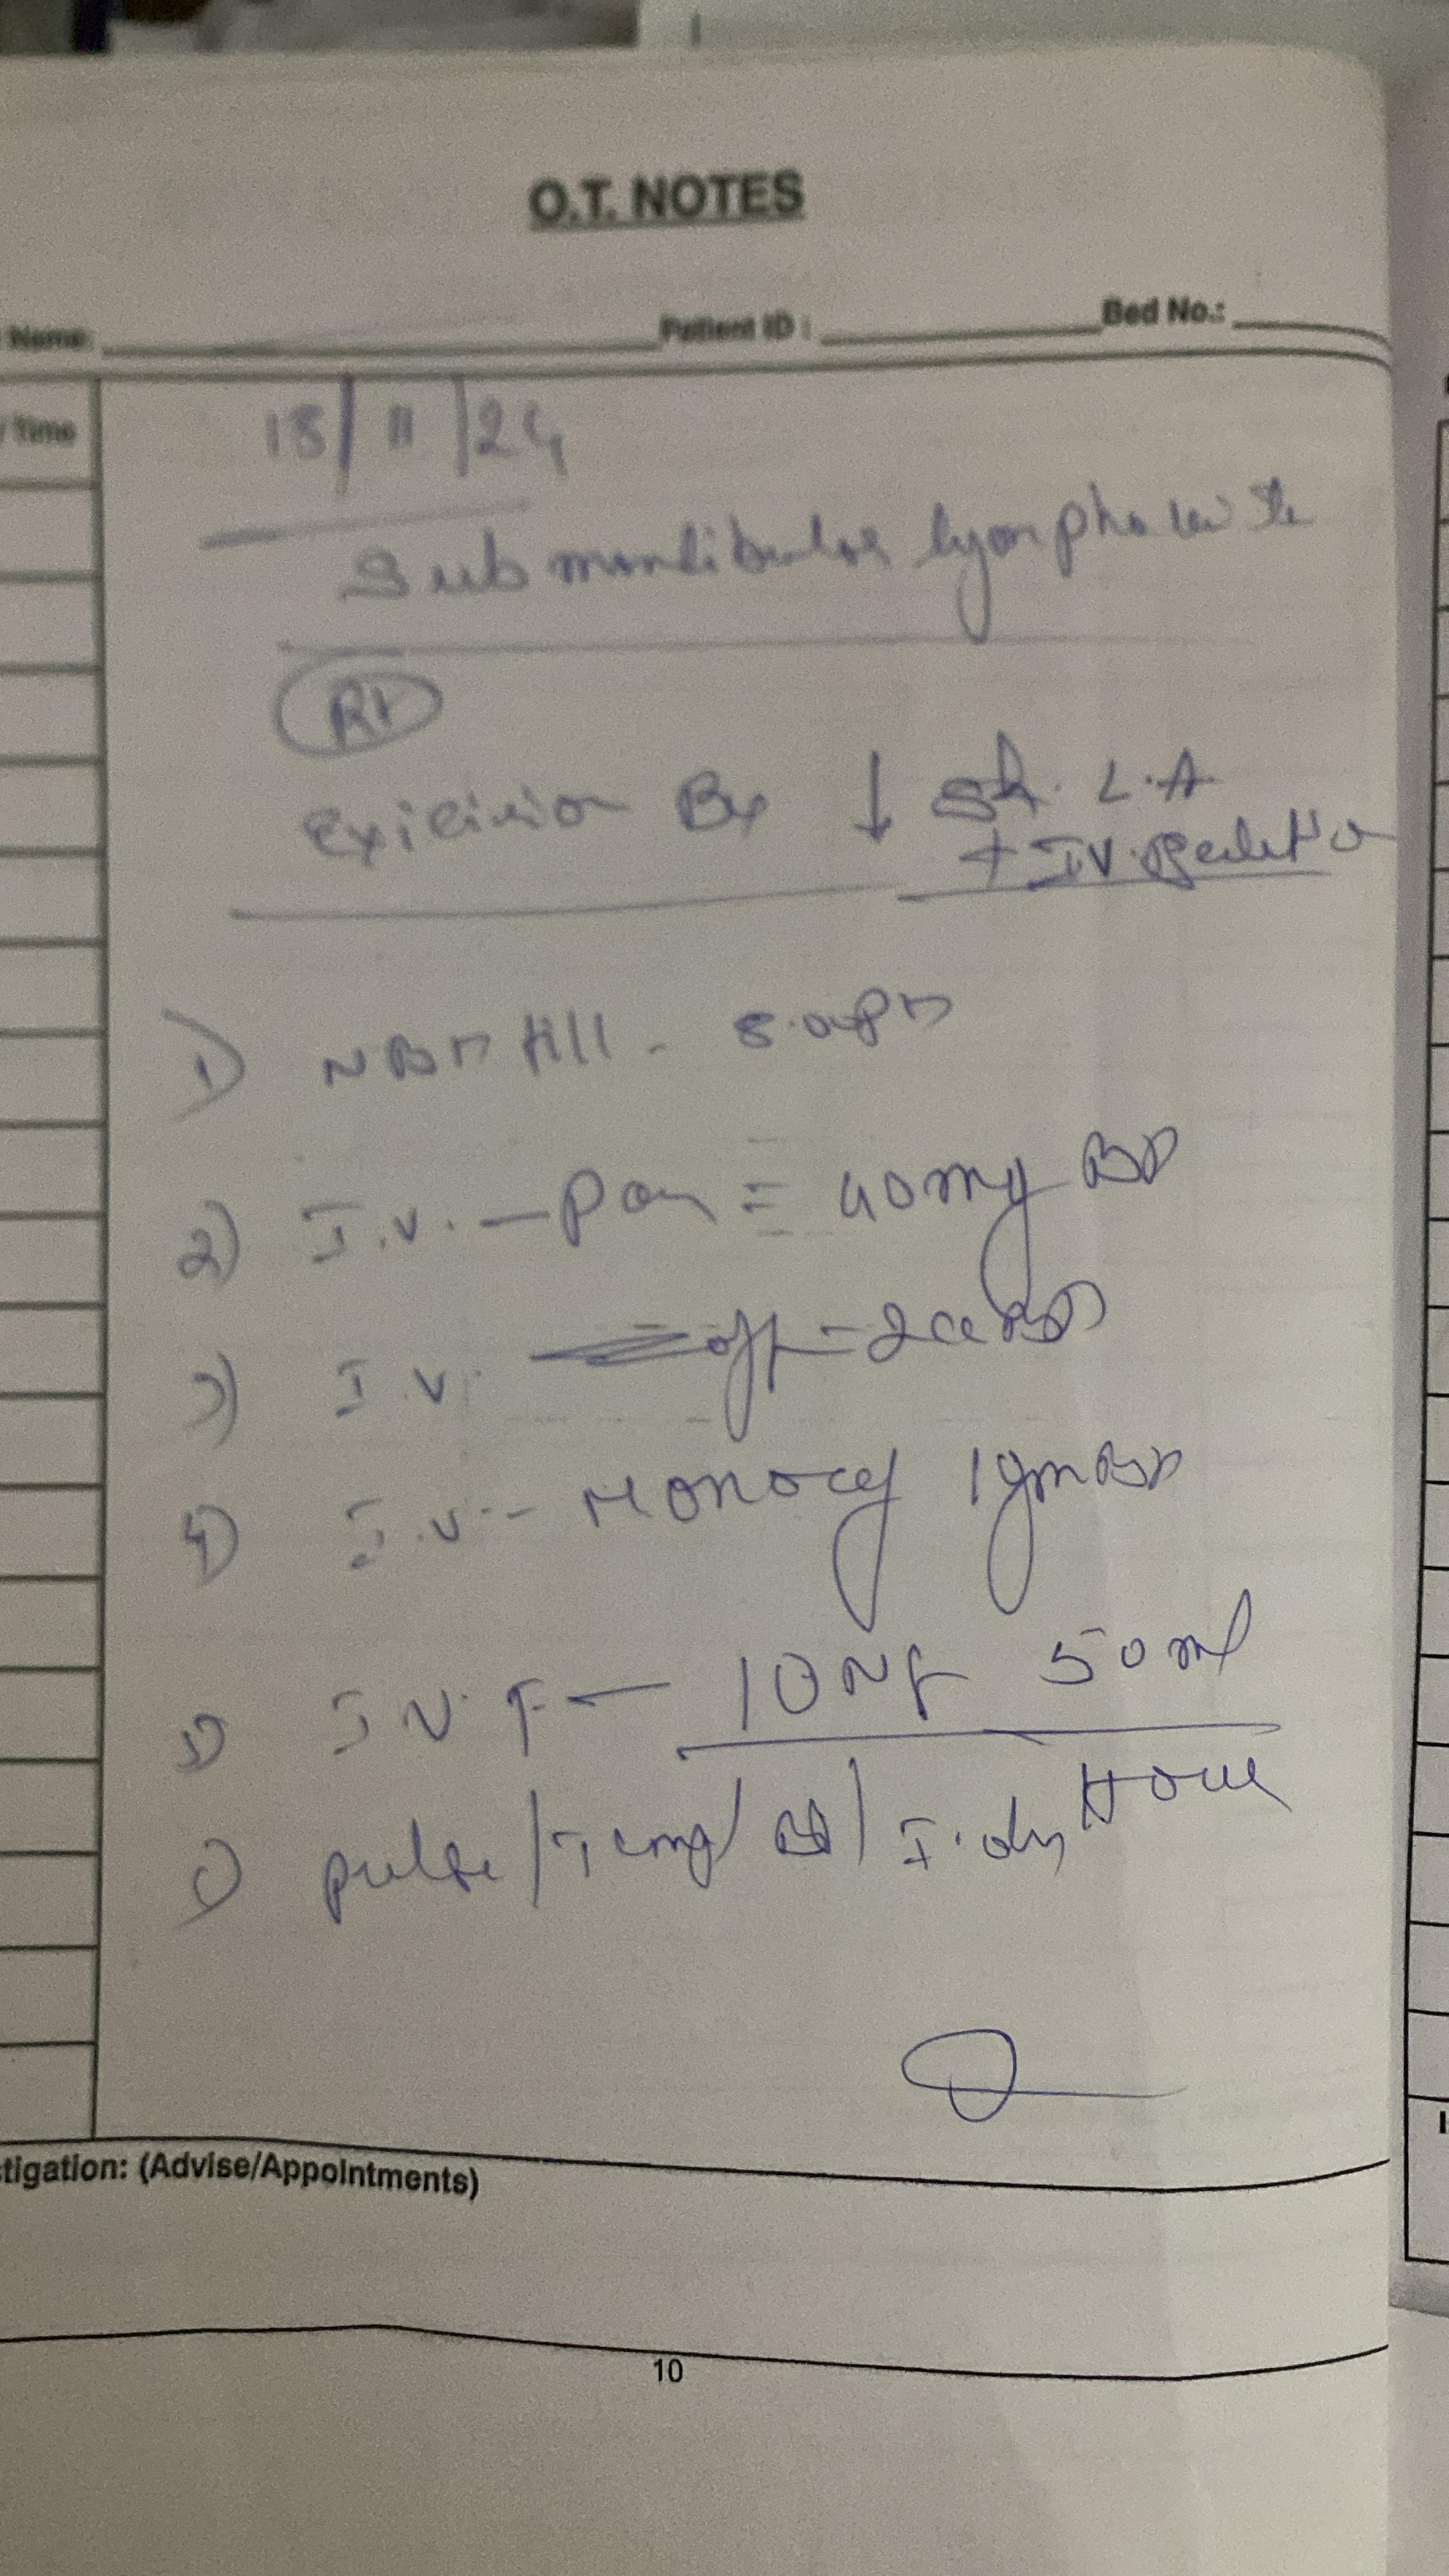 O.T. NOTES
Name: Patient ID : Bed No.:
/ Time
18/11/24
Submandibular lymph
Rt
Exicision Bx ↓ L.A
+ I.V. sedation
1) NBM till - 5.00pm
2) I.V. - Pan = 40mg BD
3) I.V. = 2cc BD
4) I.V. - Monocef 1gm BD
5) I.V.F - 50ml
Hour
) pulse / Temp / BP /
tigation: (Advise/Appointments)
10